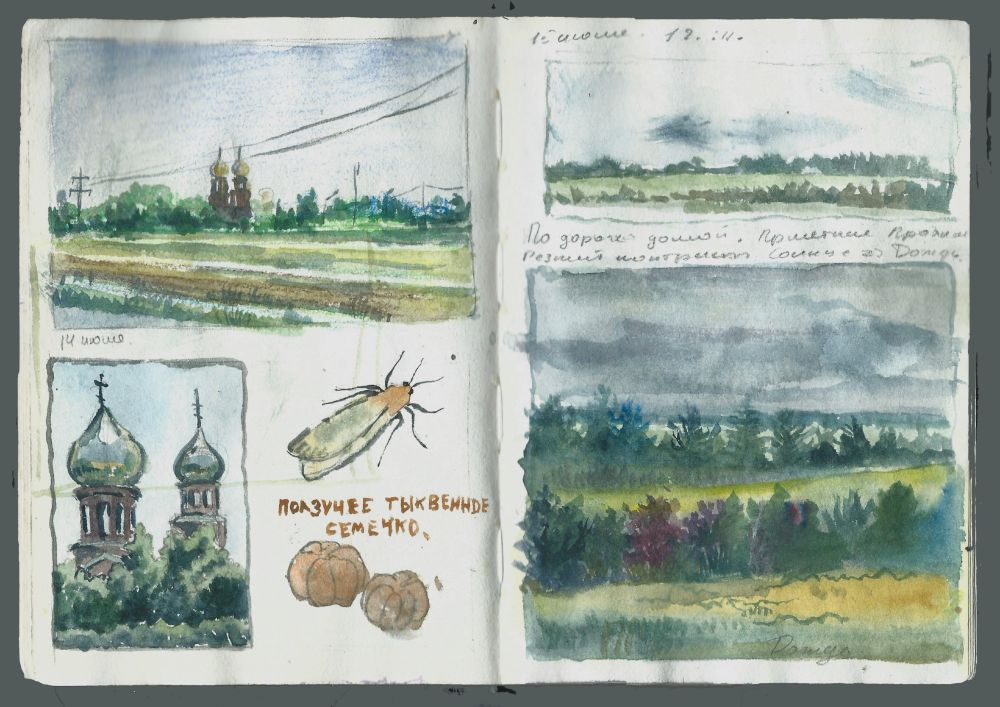 14 июня.
ПОЛЗУЧЕЕ ТЫКВЕННОЕ
СЕМЕЧКО.
15 июня.
По дороге домой.
Резкий контраст Солнце Дождь.
Дождь